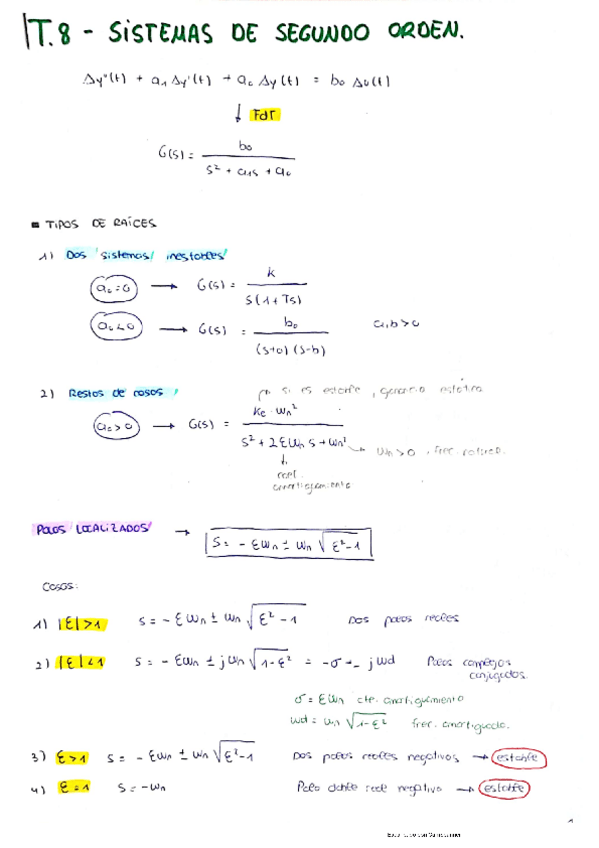 T.8 - SISTEMAS DE SEGUNDO ORDEN.
Δy''(t) + a₁ Δy'(t) + a₀ Δy(t) = b₀ Δu(t)
↓ FdT
G(s) = b₀ / (s² + a₁s + a₀)
■ TIPOS DE RAÍCES
1) Dos sistemas inestables
a₀=0 → G(s) = K / (s(1+Ts))
a₀<0 → G(s) = b₀ / ((s+a)(s-b)) a,b>0
2) Restos de casos
si es estable, ganancia estática
a₀>0 → G(s) = Ke·ωn² / (s² + 2Eωn s + ωn²)
ωn>0, frec. natural.
coef.
amortiguamiento
POLOS LOCALIZADOS → s = -Eωn ± ωn √(E²-1)
Casos:
1) |E|>1 s = -Eωn ± ωn √(E²-1) Dos polos reales
2) |E|<1 s = -Eωn ± jωn √(1-E²) = -σ +- jωd Polos complejos
conjugados.
σ = Eωn cte. amortiguamiento
ωd = ωn √(1-E²) frec. amortiguada.
3) E>1 s = -Eωn ± ωn √(E²-1) Dos polos reales negativos → estable
4) E=1 s = -ωn Polo doble real negativo → estable